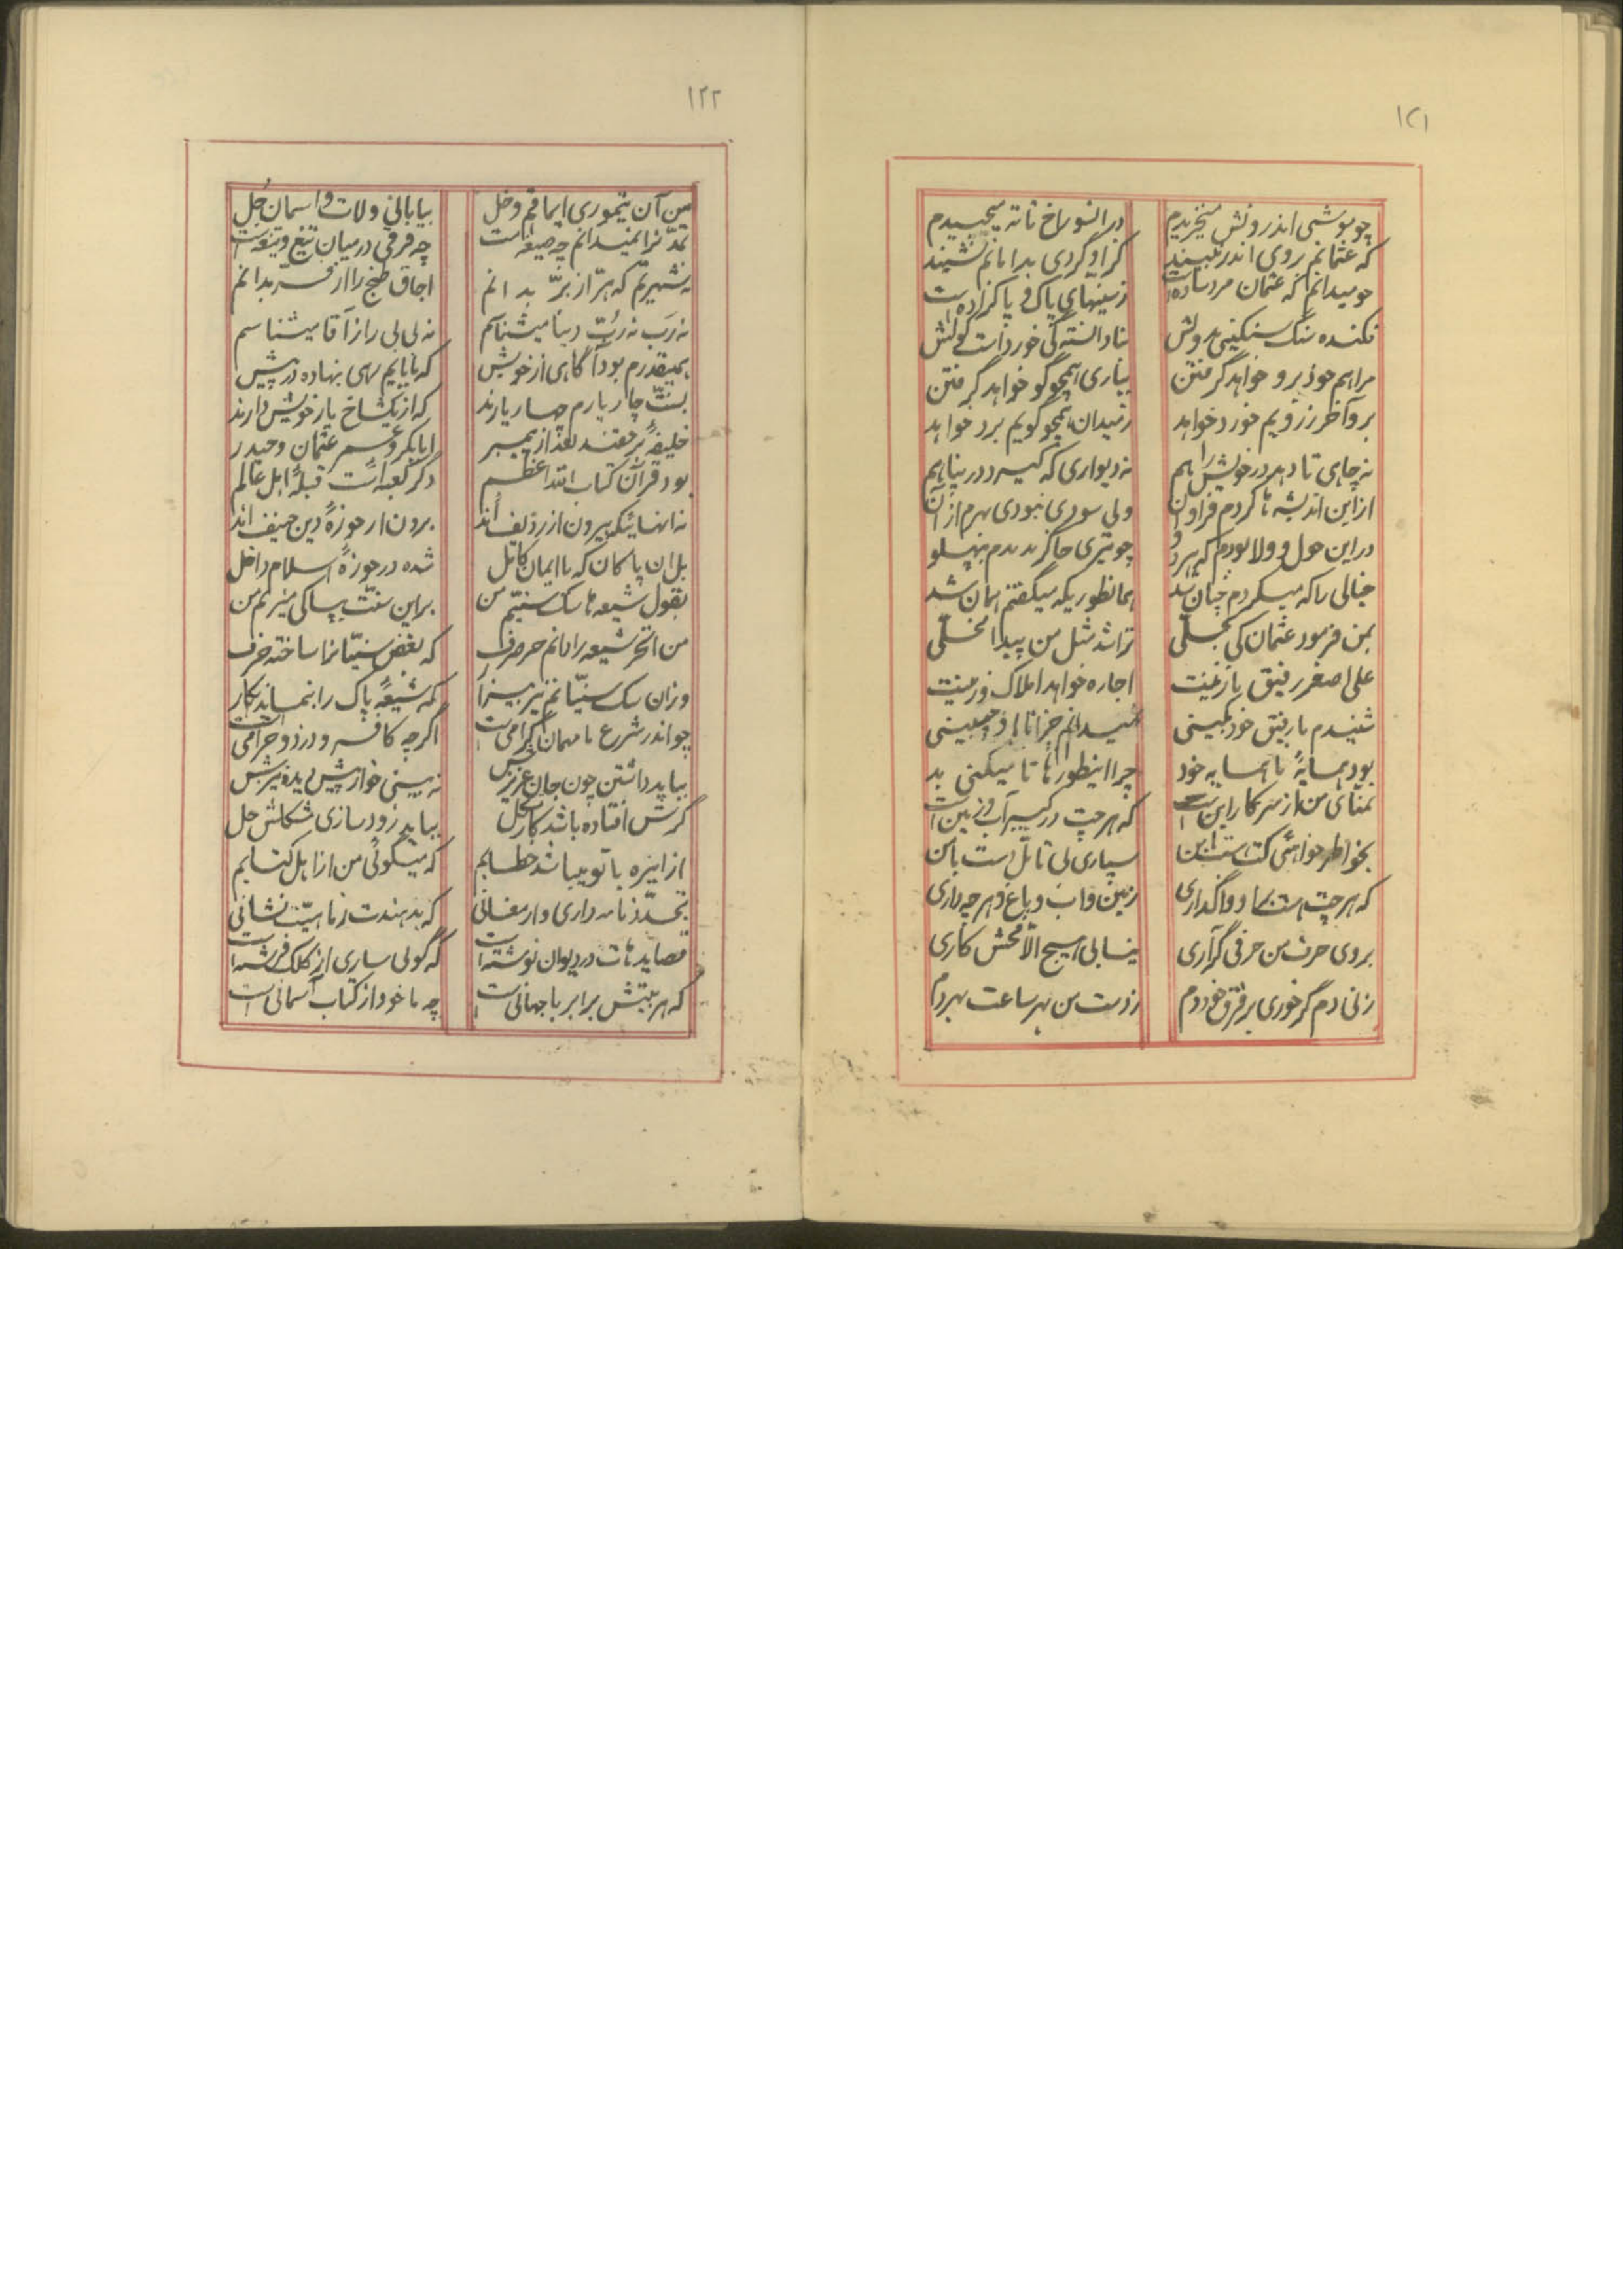 ۱۲۱
چو موشی اندرونش میخزیدم در انسوراخ تا ته میچپیدم
که عثمانم روی اندر نبیند کز او گردی بدامانم نشیند
چو میدانم که عثمان مرد ساده است ز سنیهای پاک و پاکزاده است
فکنده سنگ سنگینی بدولش ندانسته کی خورد است گولش
مرا هم خود برو خواهد گرفتن بیاری همچو گو خواهد گرفتن
بر و آخر زرویم خورد خواهد ز میدان همچو گویم برد خواهد
نه چاهی تا دهد در خویش راهم نه دیواری که گیرد در پناهم
از این اندیشه ها کردم فراوان ولی سودی نبودی بهرم از آن
در این حول و ولا بودم که هر دو چو تیری جا گزیدندم بپهلو
خیالی را که میکردم چنان شد همانطوریکه میگفتم همان شد
بمن فرمود عثمان کی تجلی تراشد مثل من پیدا مخلی
علی اصغر رفیق نازنینت اجاره خواهد املاک و زمینت
شنیدم با رفیق خود بکینی نمیدانم چرا با او چنینی
بود همسایهٔ با همسایه خود چرا اینطورها تا میکنی بد
تمنای من از سرکار این است که هر چت در کبیر آب و زمین است
بخواطر خواهی کت هست با من سپاری بی تامل دست با من
که هر چت هست با او واگذاری زمین و آب و باغ و هر چه داری
بروی حرف من حرفی گر آری نیابی هیچ الا فحش کاری
زنی دم گر خوری بر فرق خود دم ز دست من بهر ساعت بهر دم
۱۲۲
من آن تیموری ایماقم و خل بیابانی ولات و آسمان جل
تمدن را نمیدانم چه صیغه است چه فرقی در میان تیغ و تیغه است
نه شهریم که هر از بر بدانم اجاق طبخ را از فر بدانم
نه رب نه رب دنیا میشناسم نه بی بی را ز آقا میشناسم
همینقدرم بود آگاهی از خویش که با پایم رهی بنهاده در پیش
بسنت چار یارم چهار یارند که از یکشاخ یار خویش دارند
خلیفهٔ بر حقند بعد از پیمبر ابابکر و عمر عثمان و حیدر
بود قرآن کتاب الله اعظم دگر کعبه است قبلهٔ اهل عالم
نه آنهائیکه بیرون از ردیف اند برون از حوزهٔ دین حنیف اند
بل آن پاکان که با ایمان کامل شده در حوزهٔ اسلام داخل
بقول شیعه ها سگ سنیم من براین سنت بپاکی میزیم من
من آخر شیعه را دانم حر صرف که بغض سنیانرا ساخته حرف
وز آن سگ سنیانم نیز بیزار که شیعهٔ پاک را بنماید آزار
چو اندر شرع ما مهمان گرامی است اگر چه کافر و دزد و حرامی است
بباید داشتن چون جان عزیزش نه بینی خوار پیش دیده نیزش
گرش افتاده باشد کار مشکل بباید زود سازی مشکلش حل
از اینره با تو میباشد خطابم که میگوئی من از اهل کتابم
تجدد نامه داری و ارمغانی که بدهندت ز ماهیت نشانی
قصاید هات در دیوان نوشته است که گوئی ساری از کلک فرشته است
که هر بیتش برابر با جهانی است چه ماخود از کتاب آسمانی است